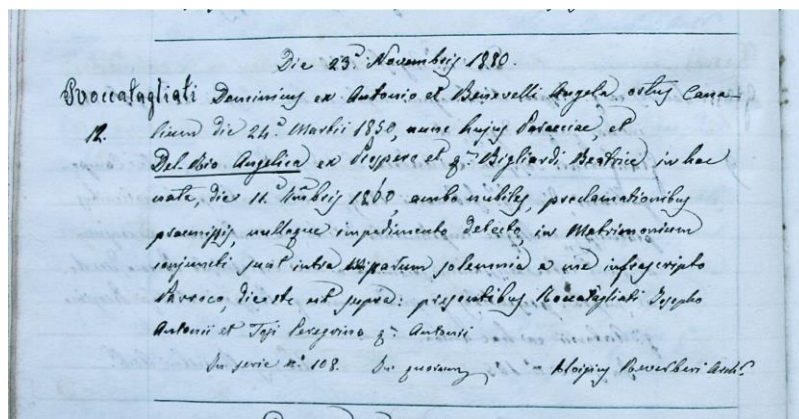 Die 23.ª Novembris 1880.
Roccatagliati Dominicus ex Antonio et Benevelli Angela ortus Cana-
12. lium die 24.ª Martii 1850, nunc hujus Paraeciae, et
Del-Rio Angelica ex Prospero et q.m Bigliardi Beatrice in hac
nata, die 11.ª 1860 ambo nubiles, proclamationibus
praemissis, nulloque impedimento detecto, in Matrimonium
conjuncti sunt intra Missarum solemnia a me infrascripto
Parroco, die ste ut supra: presentibus Roccatagliati Josepho
Antonii et Tosi Peregrino q.m Antonii
In serie n.º 108. In quorum Aloisius Reverberi Arch.